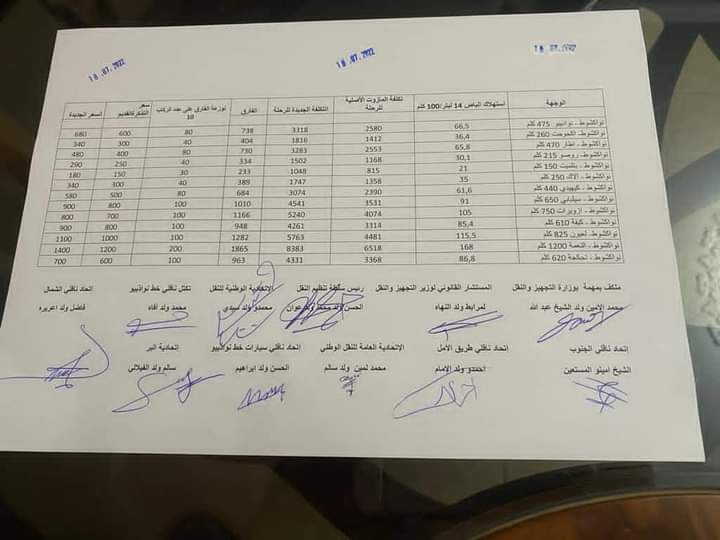 18.07.2022
18.07.2022
18.07.2022
الوجهة أستهلاك الباص 14 ليتر/100 كلم تكلفة المازوت الأصلية للرحلة التكلفة الجديدة للرحلة الفارق توزعة الفارق على عدد الركاب 10 سعر التذكرة القديم السعر الجديدة
نواكشوط - نواذيبو 475 كلم 66,5 2580 3318 738 80 600 680
نواكشوط- اكجوجت 260 كلم 36,4 1412 1816 404 40 300 340
نواكشوط - اطار 470 كلم 65,8 2553 3283 730 80 400 480
نواكشوط - روصو 215 كلم 30,1 1168 1502 334 40 250 290
نواكشوط - بتلميت 150 كلم 21 815 1048 233 30 150 180
نواكشوط - ألاك 250 كلم 35 1358 1747 389 40 300 340
نواكشوط - كيهيدي 440 كلم 61,6 2390 3074 684 80 500 580
نواكشوط - سيلبابي 650 كلم 91 3531 4541 1010 100 800 900
نواكشوط - ازويرات 750 كلم 105 4074 5240 1166 100 700 800
نواكشوط - كيفة 610 كلم 85,4 3314 4261 948 100 800 900
نواكشوط- لعيون 825 كلم 115,5 4481 5763 1282 100 1000 1100
نواكشوط- النعمة 1200 كلم 168 6518 8383 1865 200 1200 1400
نواكشوط - تجكجة 620 كلم 86,8 3368 4331 963 100 600 700
ملكف بمهمة بوزارة التجهيز والنقل المستشار القانوني لوزير التجهيز والنقل رئيس سلطة تنظيم النقل الإتحادية الوطنية للنقل تكتل ناقلي خط نواذيبو اتحاد ناقلي الشمال
محمد الامين ولد الشيخ عبد الله لمرابط ولد النهاه الحسن ولد محمد ولد عوان محمدو ولد سيدي محمد ولد أفاه فاضل ولد اعريره
إتحاد ناقلي الجنوب إتحاد ناقلي طريق الأمل الإتحادية العامة للنقل الوطني إتحاد ناقلي سيارات خط نواذيبو إتحادية البر
الشيخ امينو المستعين احمدو ولد الإمام محمد لمين ولد سالم الحسن ولد ابراهيم سالم ولد الفيلالي